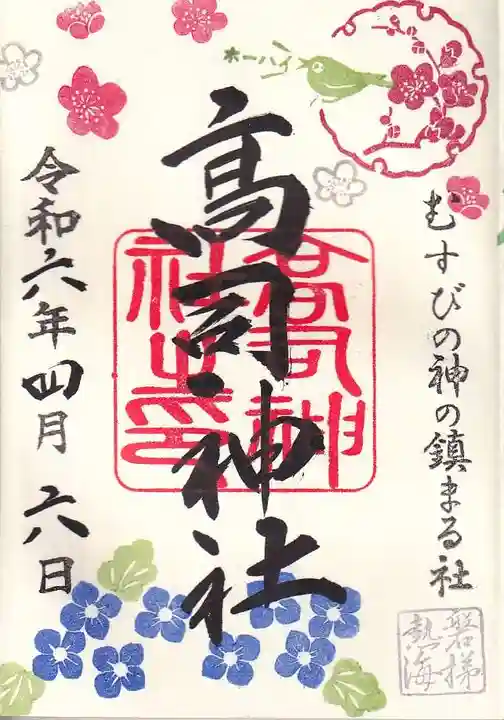 むすびの神の鎮まる社
磐梯
熱海
ホーハイ
高司神社
高司神
社之印
令和六年四月六日